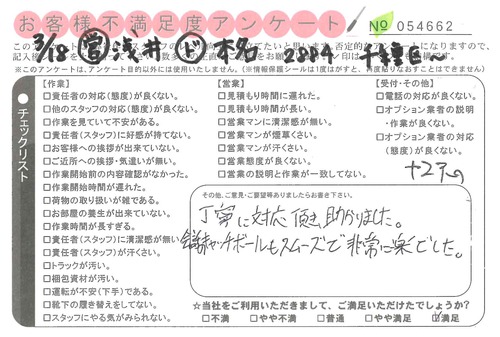 お客様不満足度アンケート
№ 054662
3/18 営 浅井 ド 本名 2884
【作業】
□責任者の対応(態度)が良くない。
□他のスタッフの対応(態度)が良くない。
□作業を見ていて不安がある。
□責任者(スタッフ)に好感が持てない。
□お客様への挨拶が出来ていない。
□ご近所への挨拶・気遣いが無い。
□作業開始前の内容確認がなかった。
□作業開始時間が遅れた。
□荷物の取り扱いが雑である。
□お部屋の養生が出来ていない。
□作業時間が長すぎる。
□責任者(スタッフ)に清潔感が無い
□責任者(スタッフ)が汗くさい。
□トラックが汚い。
□梱包資材が汚い。
□運転が不安(下手)である。
□靴下の履き替えをしてない。
□スタッフにやる気がみられない。
チェックリスト
【営業】
□見積もり時間に遅れた。
□見積もり時間が長い。
□営業マンに清潔感が無い。
□営業マンが煙草くさい。
□営業マンが汗くさい。
□営業態度が良くない。
□営業の説明と作業が一致してない。
【受付・その他】
□電話の対応が良くない。
□オプション業者の説明
・作業が良くない。
□オプション業者の対応
(態度)が良くない。
その他、ご意見・ご要望等ありましたらお書き下さい。
丁寧に対応頂き助かりました。
キャッチボールもスムーズで非常に楽でした。
☆当社をご利用いただきまして、ご満足いただけたでしょうか?
□不満 □やや不満 □普通 □やや満足 □満足